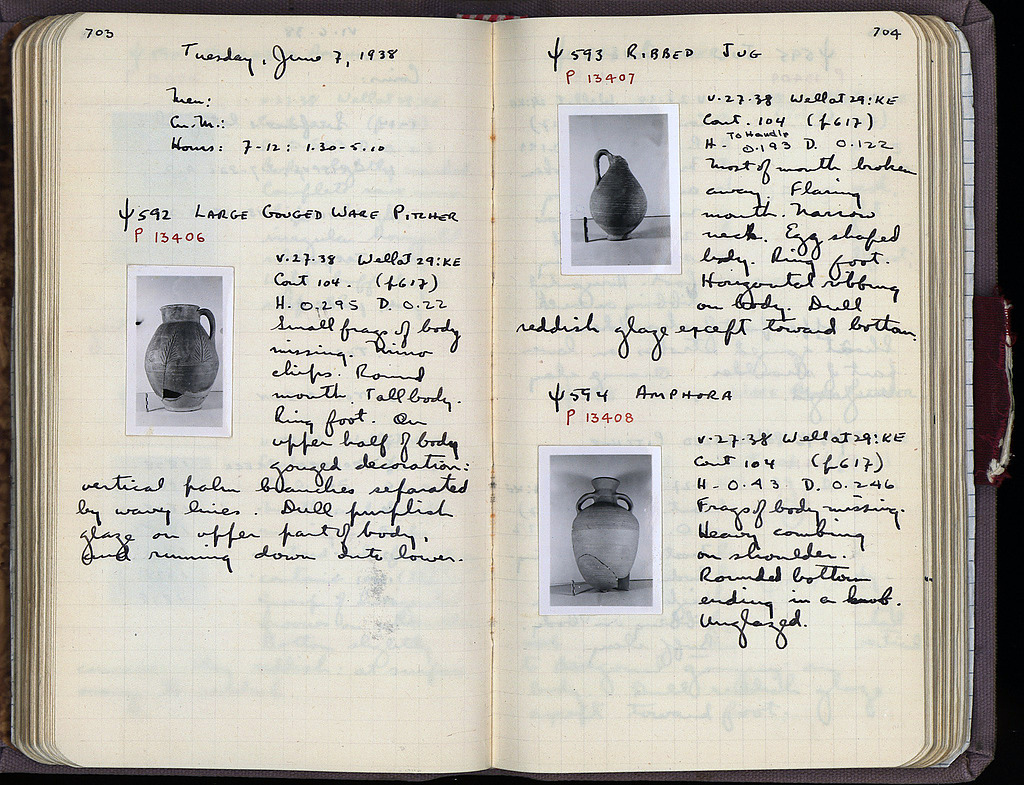 703
Tuesday, June 7, 1938
Men:
Cu. M.:
Hours: 7-12: 1.30-5.10
ψ 592 LARGE GOUGED WARE PITCHER
P 13406
V.27.38 Well at 29:KE
Cont 104. (p617)
H. 0.295 D. 0.22
Small frags of body
missing. Minor
chips. Round
mouth. Tall body.
Ring foot. On
upper half of body
gouged decoration:
vertical palm branches separated
by wavy lines. Dull purplish
glaze on upper part of body,
and running down onto lower.
704
ψ 593 RIBBED JUG
P 13407
V.27.38 Well at 29:KE
Cont. 104 (p617)
To Handle
H- 0.193 D. 0.122
Most of mouth broken
away. Flaring
mouth. Narrow
neck. Egg shaped
body. Ring foot.
Horizontal ribbing
on body. Dull
reddish glaze except toward bottom.
ψ 594 AMPHORA
P 13408
V.27.38 Well at 29:KE
Cont 104 (p617)
H- 0.43 D. 0.246
Frags of body missing.
Heavy combing
on shoulder.
Rounded bottom
ending in a knob.
Unglazed.